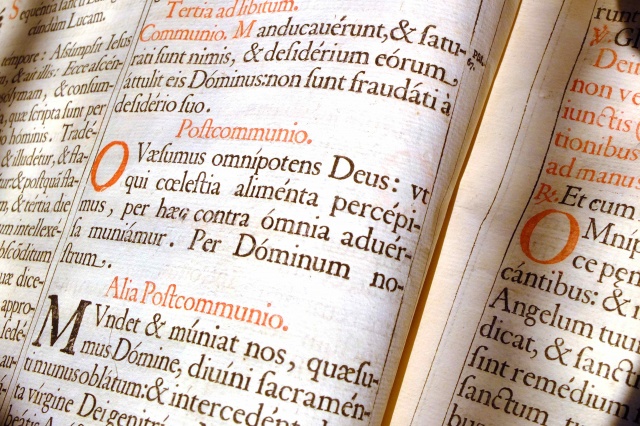 cundum Lucam.
tempore: Aſſúmpſit Ieſus
& ait illis: Ecce aſcén-
ſolymam, & conſum-
quæ ſcripta ſunt per
hóminis. Trade-
& illudetur, & fla-
& poſtquā fla-
& tértia die
intellexe-
bſcóditum
quæ dice-
appro-
ſedé-
au-
Tertia ad libitum.
Communio. Manducauérunt, & ſatu-
rati ſunt nimis, & deſidérium eórum
áttulit eis Dóminus: non ſunt fraudáti à
deſidério ſuo.
Poſtcommunio.
OVæſumus omnípotens Deus: vt
qui cœleſtia aliménta percépi-
mus, per hæc contra ómnia aduér-
ſa muniámur. Per Dóminum no-
ſtrum.
Alia Poſtcommunio.
MVndet & múniat nos, quæſu-
mus Dómine, diuíni ſacramén-
ti munus oblátum: & intercedénte
ta vírgine Dei genitrí
non ve
iunctis
tionibus
ad manu
℟. Et cum
OMníp
ce pen
cántibus: &
Angelum tuum
dicat, & ſanct
ſint remédium
ſanctum